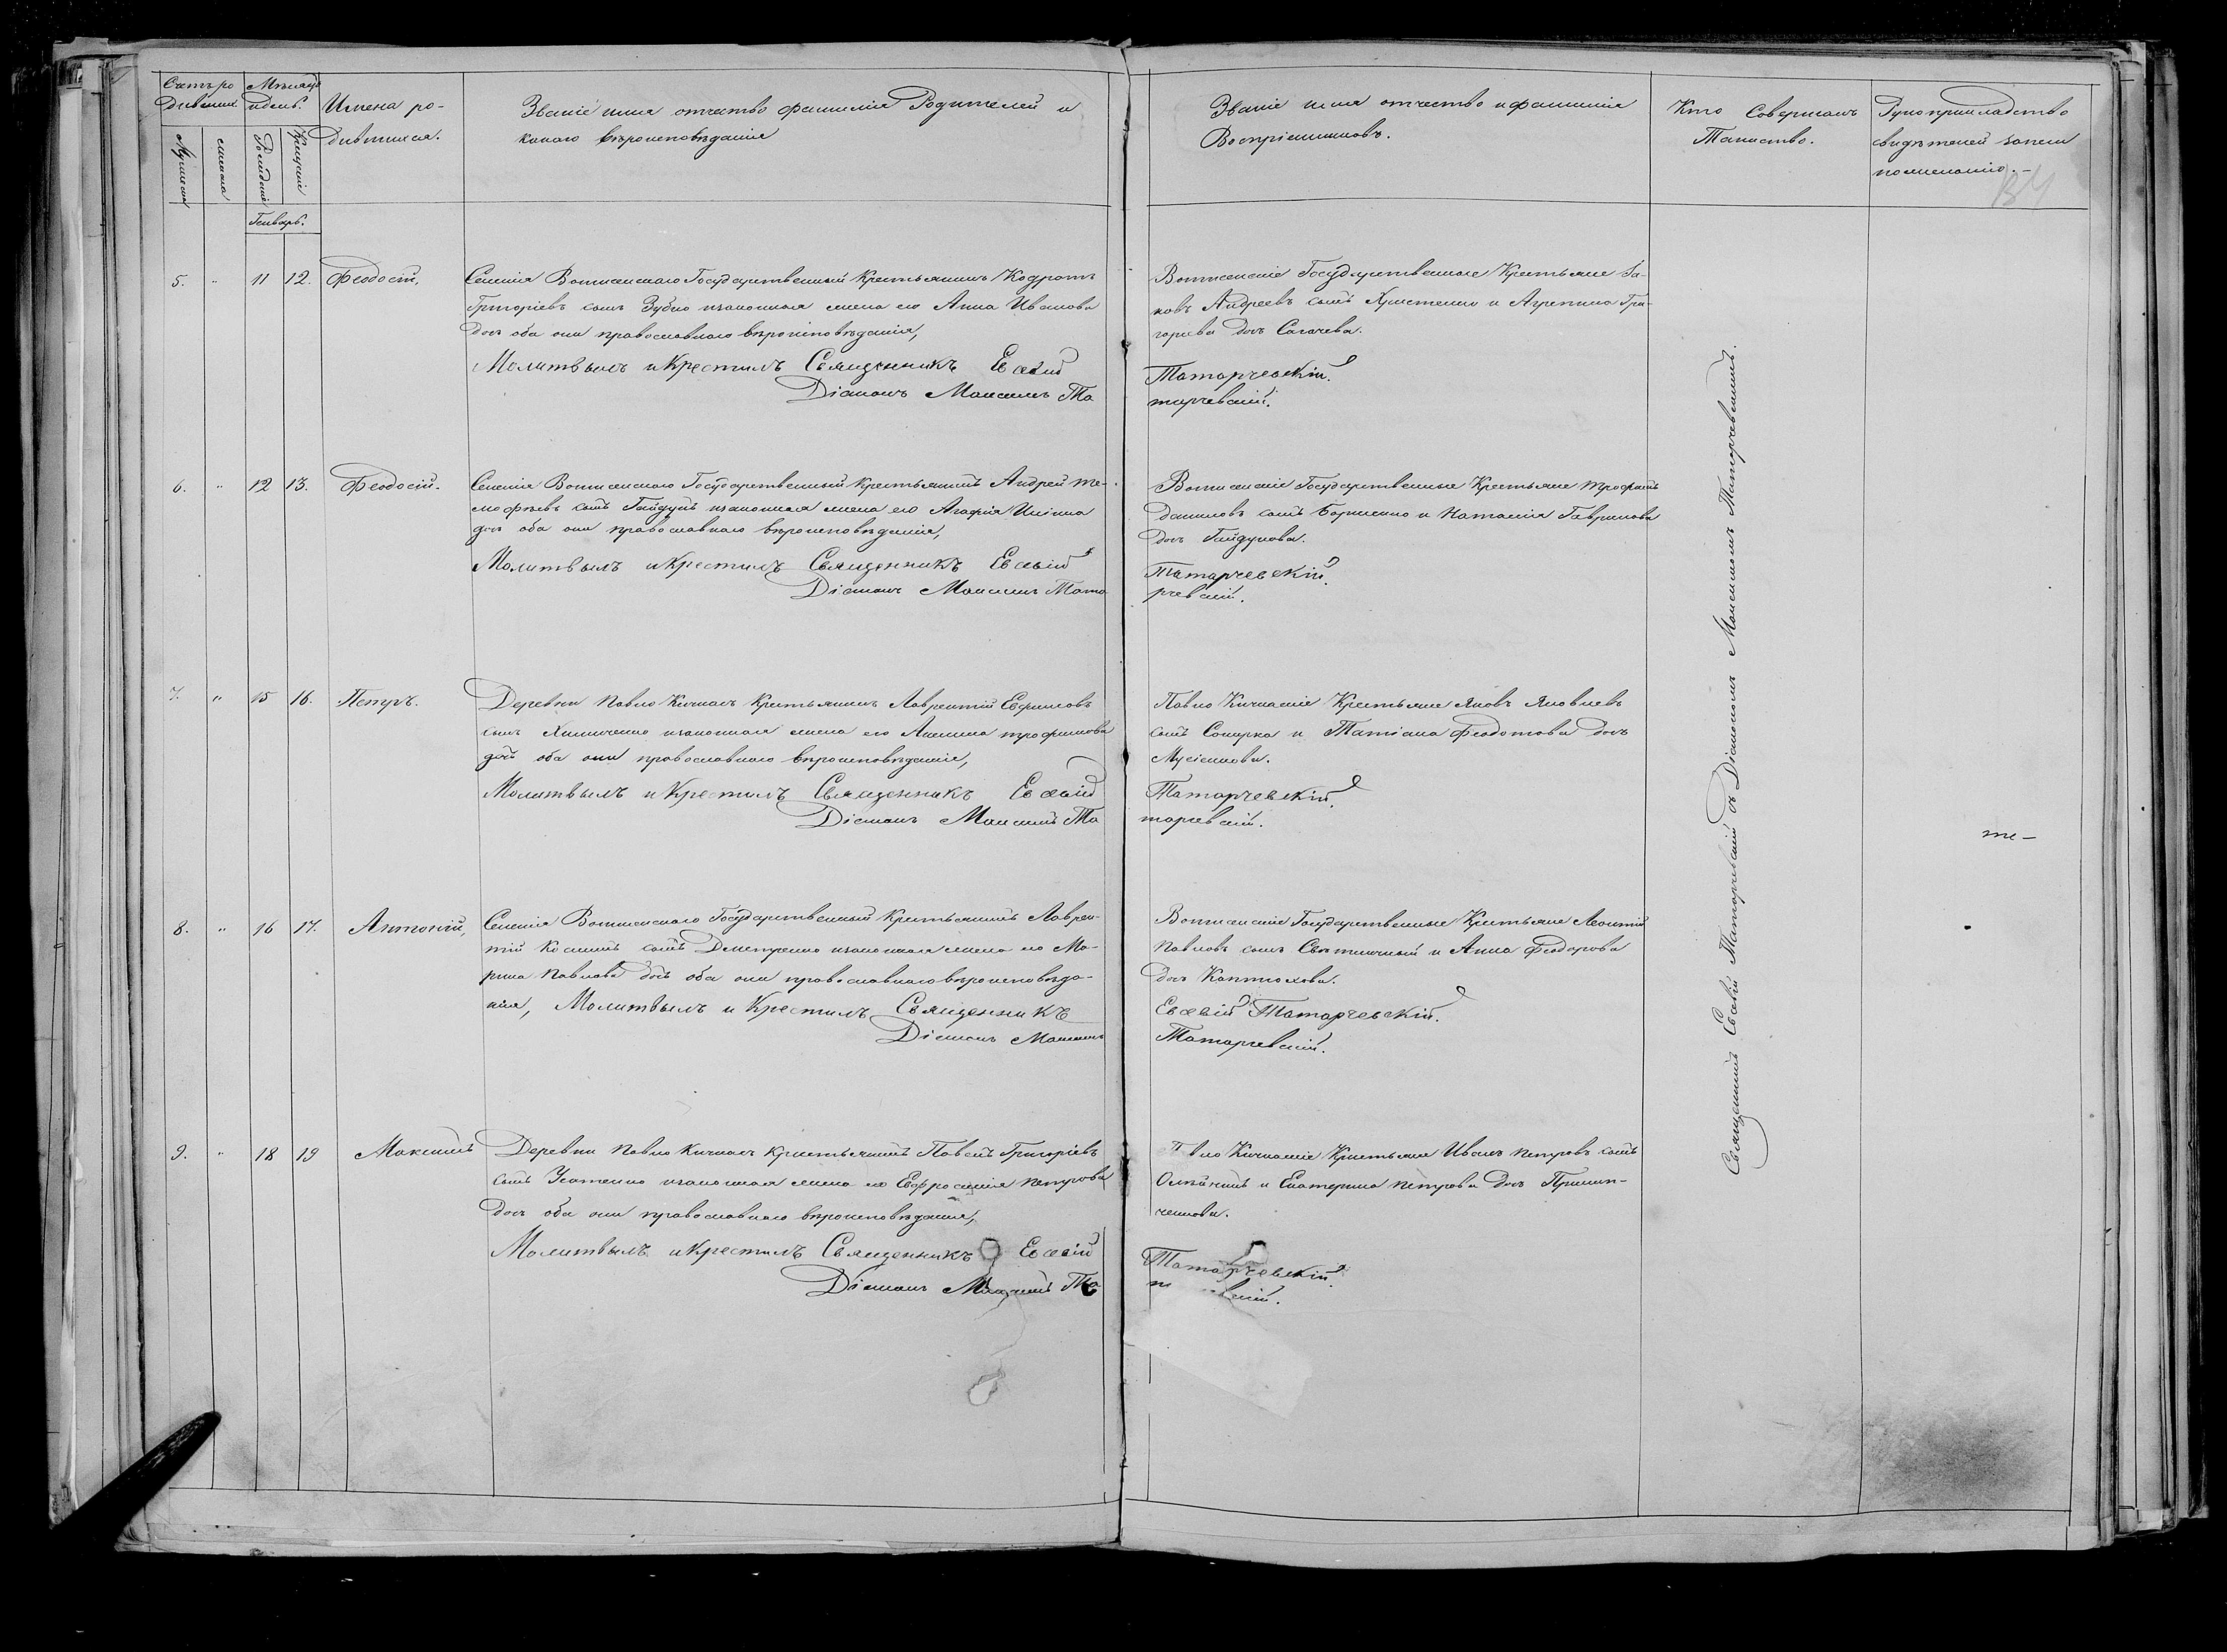 Счетъ ро
дившихся
Мѣсяцъ
и день.
Мужеска
женска
Рожденіе
Крещеніе
Генварь.
Имена ро-
дившихся.
Званіе имя отчество фамилія Родителей и
какого вѣроисповѣданія
Званіе имя отчество и фамилія
Воспріемниковъ.
Кто Совершалъ
Таинство.
Рукоприкладство
свидѣтелей записи
по желанію.-
5. " 11 12. Феодосій,
Селенія Государственный Крестьянинъ Кодратъ
Григоріевъ сынъ Зубко изаконная жена его Анна Иванова
дочь оба они православнаго вѣроисповѣданія,
Молитвылъ и Крестилъ Священникъ Евсевій
Діаконъ Максимъ Та
Государственные Крестьяне Іа-
ковъ Андреевъ сынъ и Агрепина Гри-
горьева дочь Сагачева.
Татарчевскій.
тарчевскій.
6. " 12 13. Феодосій.
Селенія Государственный Крестьянинъ Андрей Ти-
мофѣевъ сынъ Гайдукъ изаконная жена его Агафія
дочь оба они православнаго вѣроисповѣданія,
Молитвылъ и Крестилъ Священникъ Евсевій
Діаконъ Максимъ Тата
Государственные Крестьяне Трофимъ
Даниловъ сынъ и Наталія Гаврилова
дочь Гайдукова.
Татарчевскій.
рчевскій.
7. " 15 16. Петръ.
Деревни Павло Кичкасъ Крестьянинъ Лаврентій Евфимовъ
сынъ изаконная жена его Акилина Трофимова
дочь оба они православнаго вѣроисповѣданія,
Молитвылъ и Крестилъ Священникъ Евсевій
Діаконъ Максимъ Та
Павло Кичкаскіе Крестьяне Яковъ Яковлевъ
сынъ и Татіана Феодотова дочь
Татарчевскій.
тарчевскій.
8. " 16 17. Антоній,
Селенія Государственный Крестьянинъ Лаврен-
тій Косминъ сынъ Дметренко изаконная жена его Ма-
рина Павлова дочь оба они православнаго вѣроисповѣда-
нія, Молитвылъ и Крестилъ Священникъ
Діаконъ Максимъ
Государственные Крестьяне Леонтій
Павловъ сынъ и Анна Феодорова
дочь Каптюхова.
Евсевій Татарчевскій.
Татарчевскій.
9. " 18 19 Максимъ
Деревни Павло Кичкасъ Крестьянинъ Павелъ Григоріевъ
сынъ Усатенко изаконная жена его Евфросинія Петрова
дочь оба они православнаго вѣроисповѣданія,
Молитвылъ и Крестилъ Священникъ Евсевій
Діаконъ Максимъ Та
Кичкаскіе Крестьяне Иванъ Петровъ сынъ
и Екатерина Петрова дочь
Татарчевскій.
Священникъ Евсевій Татарчевскій съ Діакономъ Максимомъ Татарчевскимъ.
те-